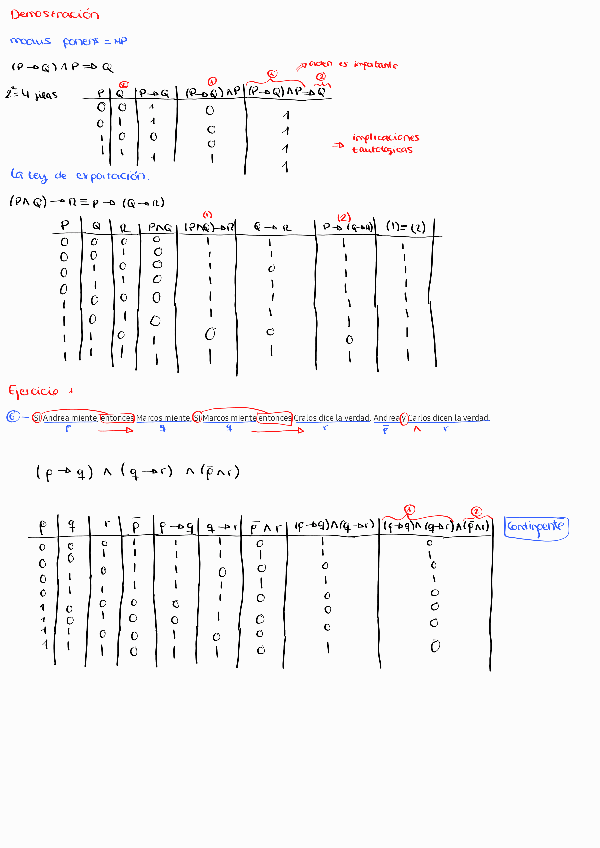 Demostración
modus ponens = MP
(P→Q) ∧ P ⇒ Q
→ orden es importante
2² = 4 filas
P Q P→Q (P→Q)∧P (P→Q)∧P ⇒ Q
0 0 1 0 1
0 1 1 0 1
1 0 0 0 1
1 1 1 1 1
⇒ implicaciones tautológicas
La ley de exportación.
(P∧Q)→R ≡ P→(Q→R)
(1) (2)
P Q R P∧Q (P∧Q)→R Q→R P→(Q→R) (1)=(2)
0 0 0 0 1 1 1 1
0 0 1 0 1 1 1 1
0 1 0 0 1 0 1 1
0 1 1 0 1 1 1 1
1 0 0 0 1 1 1 1
1 0 1 0 1 1 1 1
1 1 0 1 0 0 0 1
1 1 1 1 1 1 1 1
Ejercicio 1
6 – Si Andrea miente, entonces Marcos miente. Si Marcos miente entonces Cralos dice la verdad. Andrea y Carlos dicen la verdad.
p → q q → r p̅ ∧ r
(p→q) ∧ (q→r) ∧ (p̅∧r)
① ②
p q r p̅ p→q q→r p̅∧r (p→q)∧(q→r) (p→q)∧(q→r)∧(p̅∧r) Contingente
0 0 0 1 1 1 0 1 0
0 0 1 1 1 1 1 1 1
0 1 0 1 1 0 0 0 0
0 1 1 1 1 1 1 1 1
1 0 0 0 0 1 0 0 0
1 0 1 0 0 1 0 0 0
1 1 0 0 1 0 0 0 0
1 1 1 0 1 1 0 1 0